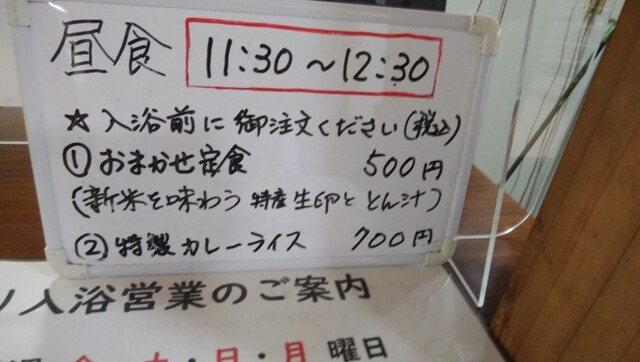 昼食 11:30～12:30
☆入浴前に御注文ください(税込)
①おまかせ定食 500円
(新米を味わう 特産生卵ととん汁)
②特製カレーライス 700円
入浴営業のご案内
金・土・日・月曜日